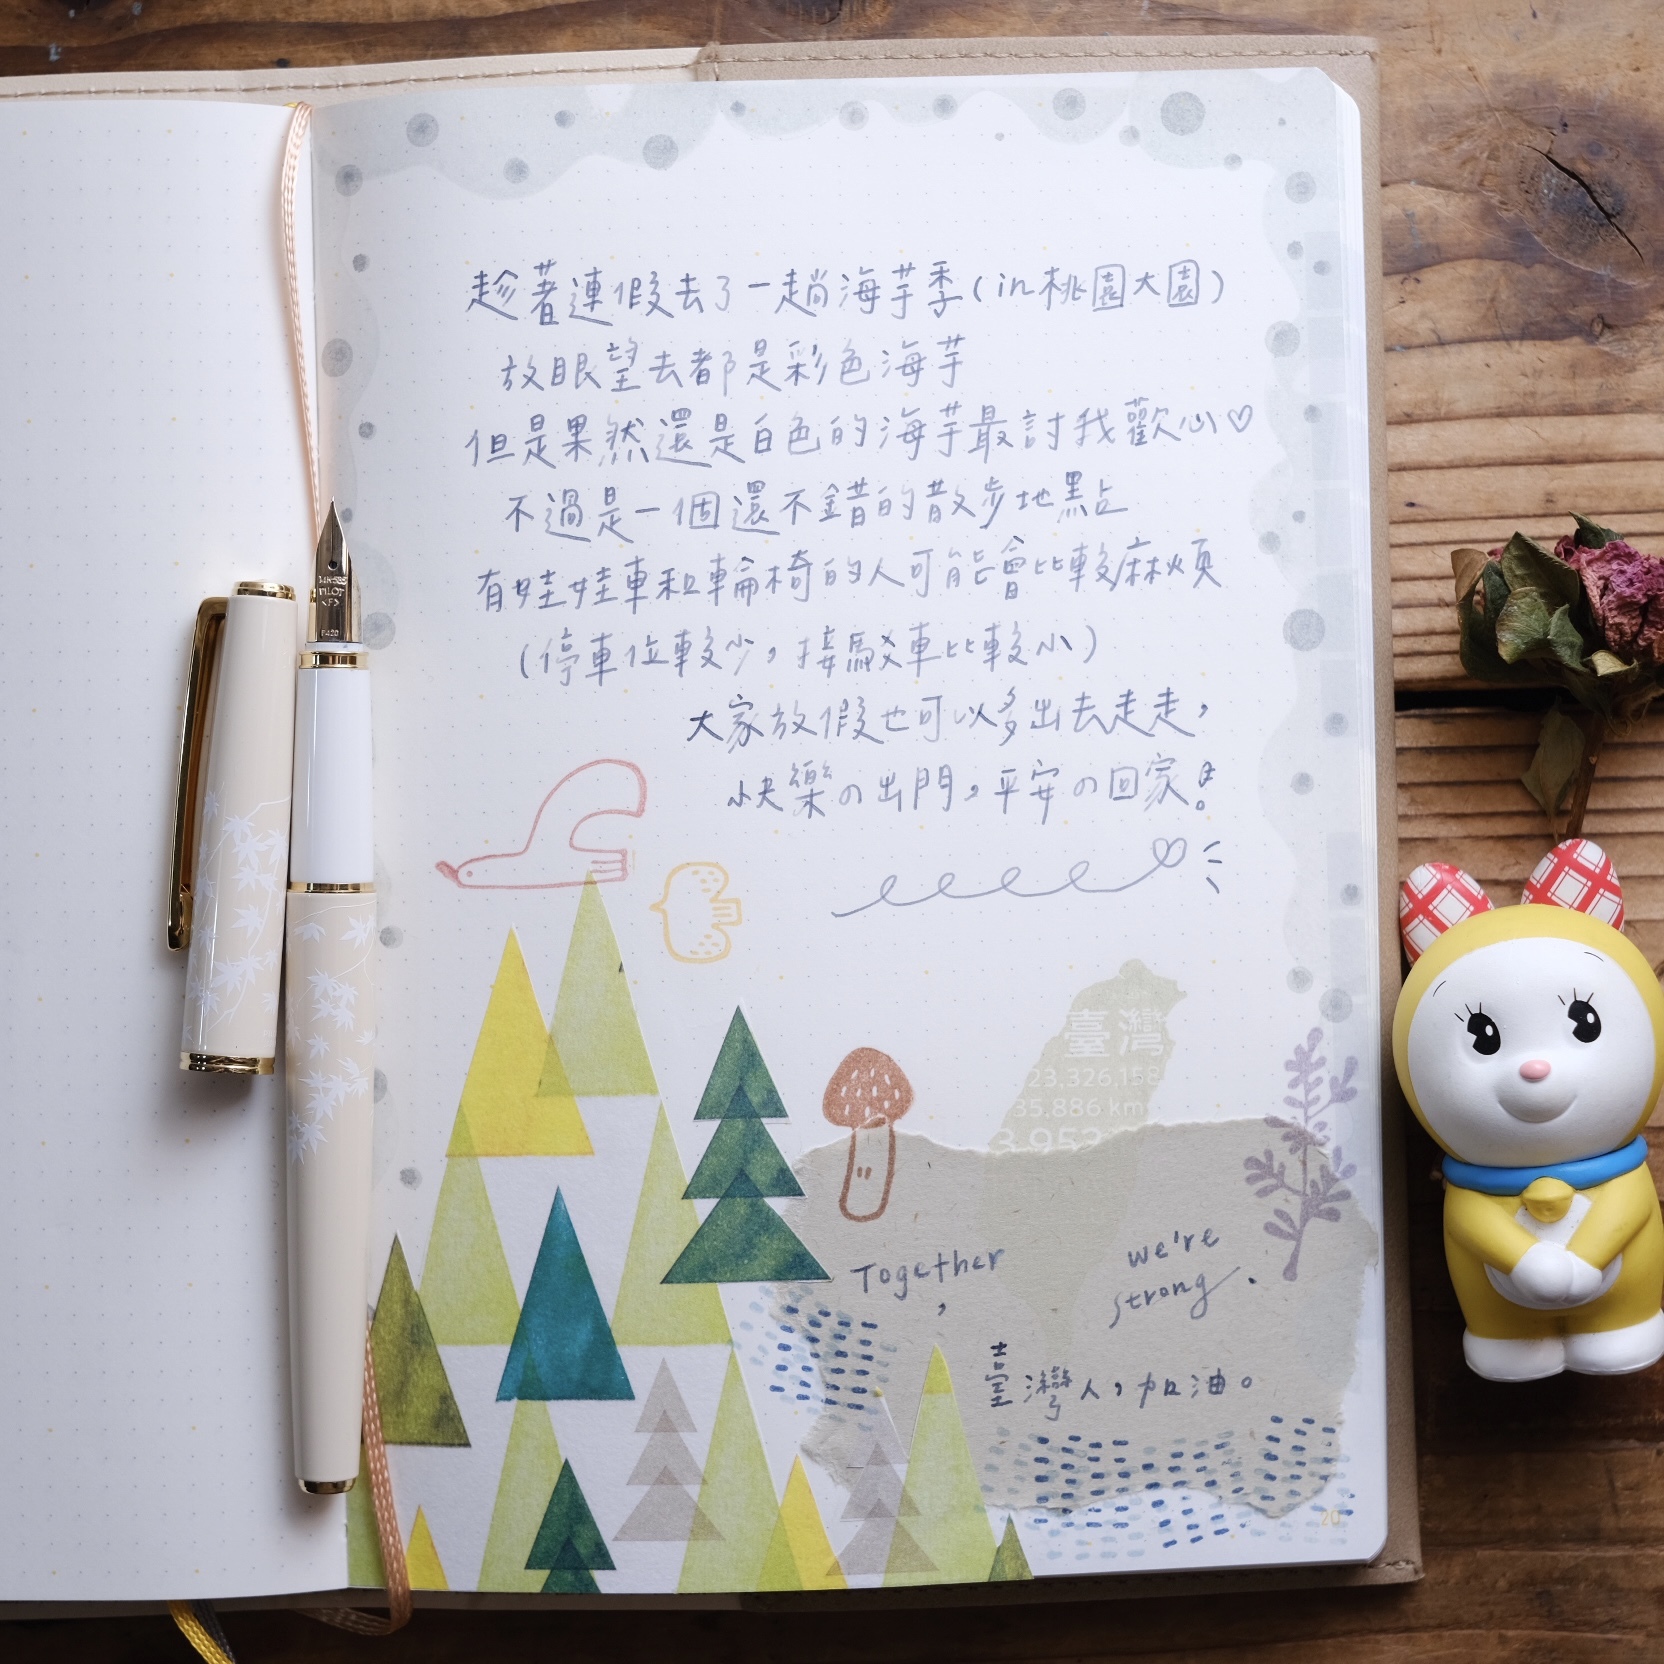 趁著連假去了一趟海芋季(in桃園大園)
放眼望去都是彩色海芋
但是果然還是白色的海芋最討我歡心♡
不過是一個還不錯的散步地點
有娃娃車和輪椅的人可能會比較麻煩
(停車位較少，接駁車比較小)
大家放假也可以多出去走走，
快樂の出門，平安の回家！
14K-585
PILOT
<F>
臺灣
23,326,158
35,886 km
Together
,
we're
strong.
臺灣人，加油。
20